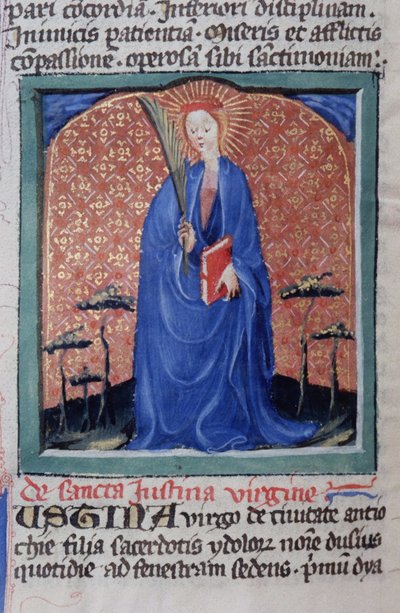 pari cōcordiā. Inferiori disciplinam.
Inimicis patientiā. Miseris et afflictis
cōpassione. operosam sibi sanctimoniam:.
de sancta Iustina virgine
USTINA virgo de ciuitate antio
chie filia sacerdotis ydolorꝝ noīe dusius
quotidie ad fenestram sedens. p̄mū dya